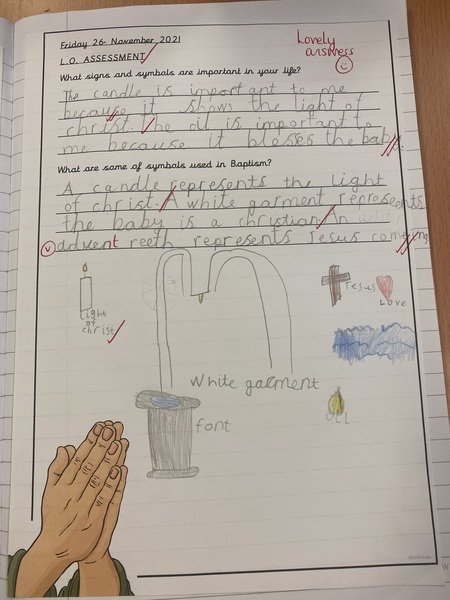 Friday 26. November 2021
Lovely
answers
L.O. ASSESSMENT
What signs and symbols are important in your life?
The candle is important to me
because it shows the light of
christ. The oil is important to
me because it blesses the baby.
What are some of symbols used in Baptism?
A candle represents the light
of christ. A white garment represents
the baby is a christian. An
v advent reeth represents Jesus coming
light
of
christ
Jesus
Love
White garment
font
oil